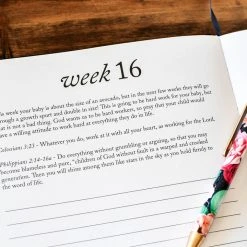 week 16
is week your baby is about the size of an avocado, but in the next few weeks they will go
rough a growth spurt and double in size! This is going to be hard work for your baby, but
at is not a bad thing. God wants us to be hard workers, so pray that your child would
ve a willing attitude to work hard at everything they do in life.
Colossians 3:23 - Whatever you do, work at it with all your heart, as working for the Lord,
Philippians 2:14-16a - Do everything without grumbling or arguing, so that you may
become blameless and pure, "children of God without fault in a warped and crooked
generation. Then you will shine among them like stars in the sky as you hold firmly to
the word of life.